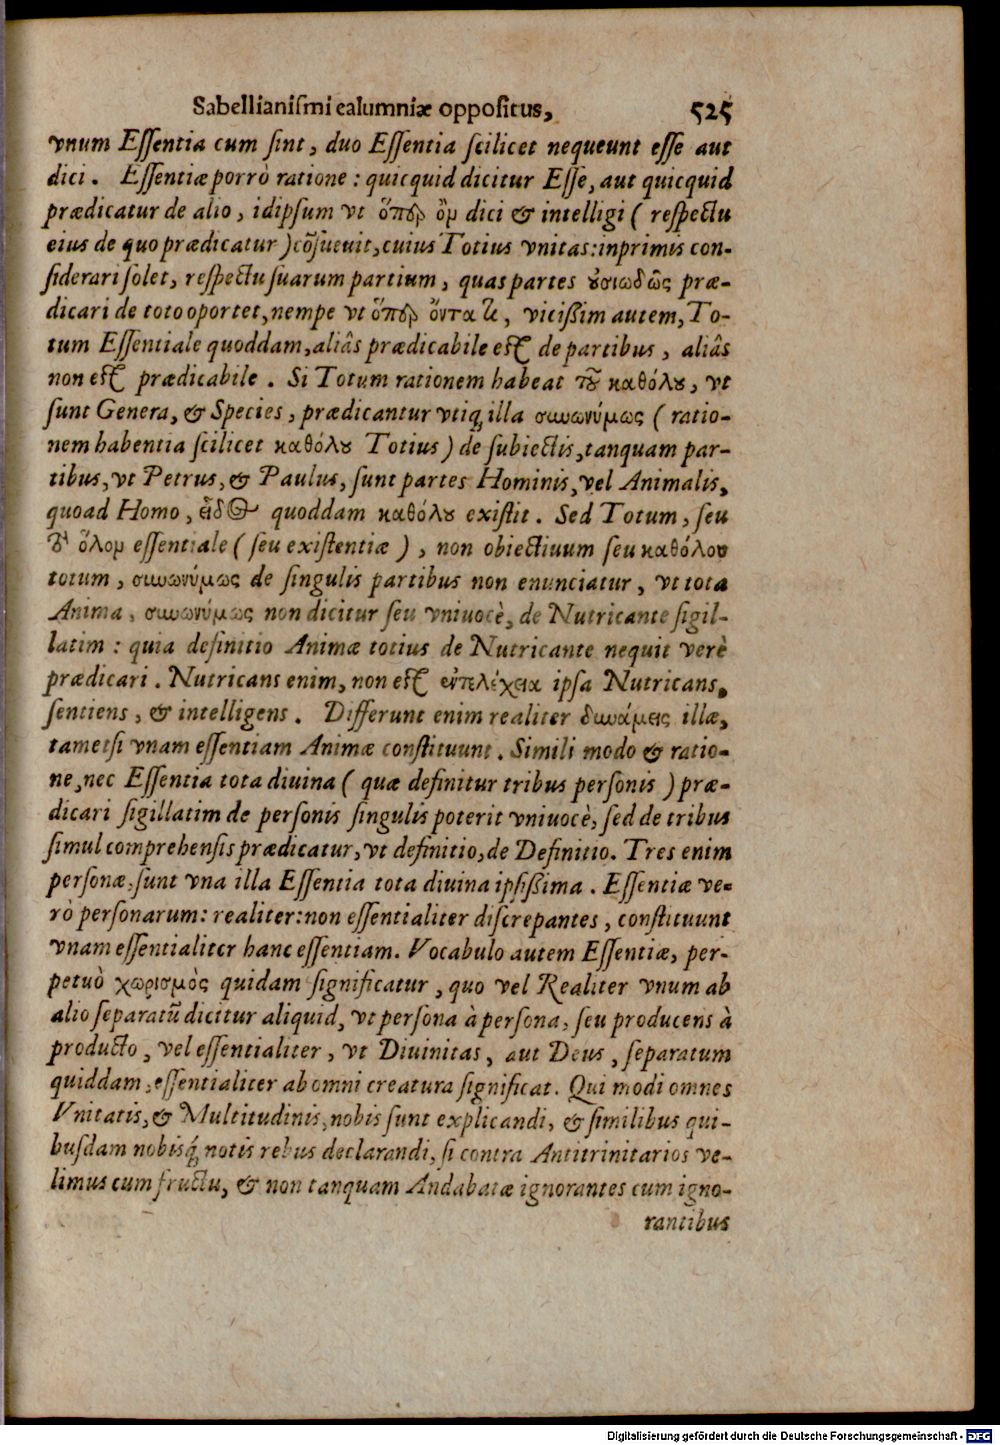 Sabellianiſmi calumniæ oppoſitus, 525
vnum Eſſentia cum ſint, duo Eſſentia ſcilicet nequeunt eſſe aut
dici. Eſſentiæ porrò ratione: quicquid dicitur Eſſe, aut quicquid
prædicatur de alio, idipſum vt ὅπερ ὂν dici & intelligi (reſpectu
eius de quo prædicatur) cõſueuit, cuius Totius vnitas: inprimis con-
ſiderari ſolet, reſpectu ſuarum partium, quas partes οὐσιωδῶς præ-
dicari de toto oportet, nempe vt ὅπερ ὄντα , vicißim autem, To-
tum Eſſentiale quoddam, aliâs prædicabile eſt de partibus, aliâs
non eſt prædicabile. Si Totum rationem habeat τοῦ καθόλου, vt
ſunt Genera, & Species, prædicantur vtiq; illa συνωνύμως (ratio-
nem habentia ſcilicet καθόλου Totius) de ſubiectis, tanquam par-
tibus, vt Petrus, & Paulus, ſunt partes Hominis, vel Animalis,
quoad Homo, εἶδος quoddam καθόλου exiſtit. Sed Totum, ſeu
τὸ ὅλον eſſentiale (ſeu exiſtentiæ), non obiectiuum ſeu καθόλου
totum, συνωνύμως de ſingulis partibus non enunciatur, vt tota
Anima, συνωνύμως non dicitur ſeu vniuocè, de Nutricante ſigil-
latim: quia definitio Animæ totius de Nutricante nequit verè
prædicari. Nutricans enim, non eſt ἐντελέχεια ipſa Nutricans,
ſentiens, & intelligens. Differunt enim realiter δυνάμεις illæ,
tametſi vnam eſſentiam Animæ conſtituunt. Simili modo & ratio-
ne, nec Eſſentia tota diuina (quæ definitur tribus perſonis) præ-
dicari ſigillatim de perſonis ſingulis poterit vniuocè, ſed de tribus
ſimul comprehenſis prædicatur, vt definitio, de Definitio. Tres enim
perſonæ, ſunt vna illa Eſſentia tota diuina ipſißima. Eſſentiæ ve-
rò perſonarum: realiter: non eſſentialiter diſcrepantes, conſtituunt
vnam eſſentialiter hanc eſſentiam. Vocabulo autem Eſſentiæ, per-
petuò χωρισμὸς quidam ſignificatur, quo vel Realiter vnum ab
alio ſeparatũ dicitur aliquid, vt perſona à perſona, ſeu producens à
producto, vel eſſentialiter, vt Diuinitas, aut Deus, ſeparatum
quiddam, eſſentialiter ab omni creatura ſignificat. Qui modi omnes
Vnitatis, & Multitudinis, nobis ſunt explicandi, & ſimilibus qui-
buſdam nobisq; notis rebus declarandi, ſi contra Antitrinitarios ve-
limus cum fructu, & non tanquam Andabatæ ignorantes cum igno-
rantibus
Digitalisierung gefördert durch die Deutsche Forschungsgemeinschaft - DFG